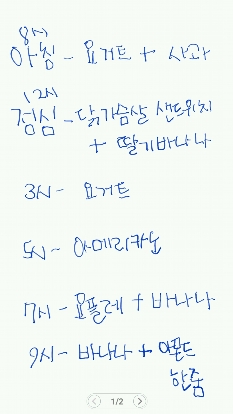 8시
아침 - 요거트 + 사과
12시
점심 - 닭가슴살 샌드위치
+ 딸기바나나
3시 - 요거트
5시 - 아메리카노
7시 - 요플레 + 바나나
9시 - 바나나 + 아몬드
한줌
1/2